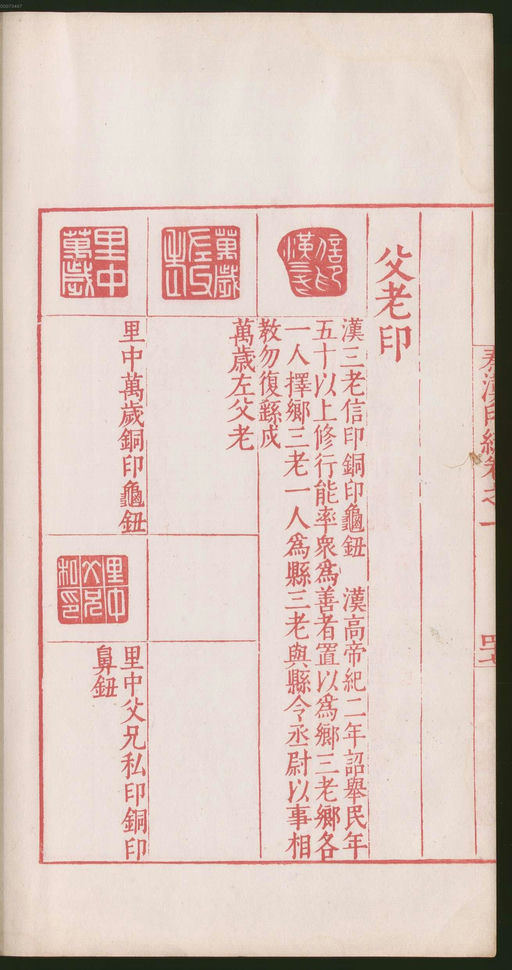 00073447
秦漢印統卷之一
四七
父老印
漢三老信印銅印龜鈕　漢高帝紀二年詔舉民年
五十以上修行能率衆為善者置以為鄉三老鄉各
一人擇鄉三老一人為縣三老與縣令丞尉以事相
教勿復繇戍
萬歲左父老
里中萬歲銅印龜鈕
里中萬歲
里中父兄私印銅印
鼻鈕
里中父兄私印